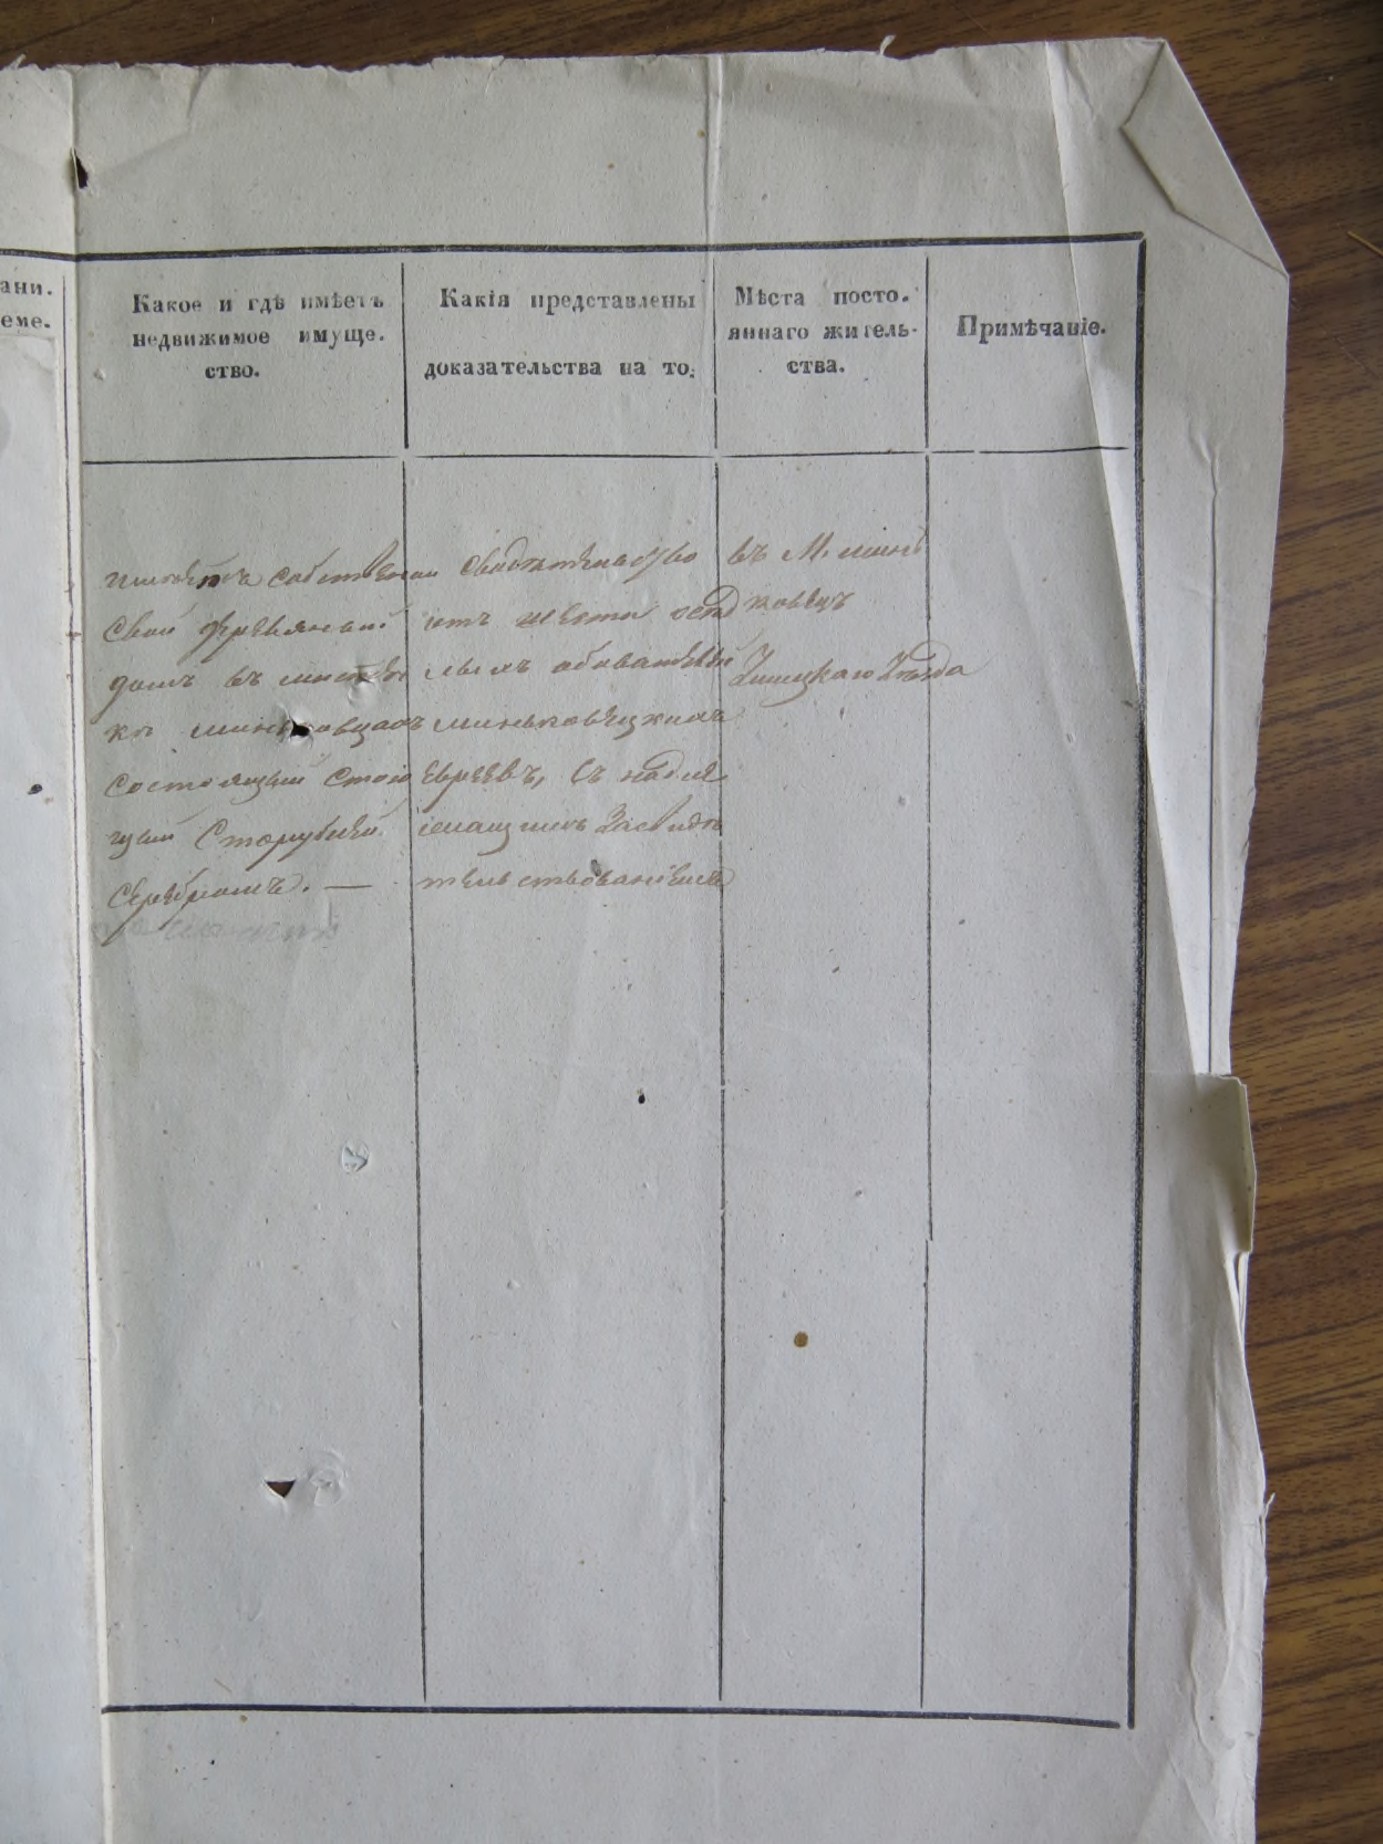 ани.
еме.
Какое и гдѣ имѣетъ
недвижимое имуще.
ство.
Какія представлены
доказательства на то.
Мѣста посто.
яннаго житель-
ства.
Примѣчаніе.
имѣетъ собственой
свой дѣревяный
домъ въ мѣстеч
кѣ миньковцахъ
состоящый стою
щый Сторублѣй
серебромъ. —
Свидѣтельство
отъ шести осѣд
лыхъ обывателей
миньковѣцкихъ
Евреевъ, Съ надле
жащимъ Засвидѣ
тельствованіемъ
въ М. минь
ковцахъ
Ушицкаго Уѣзда